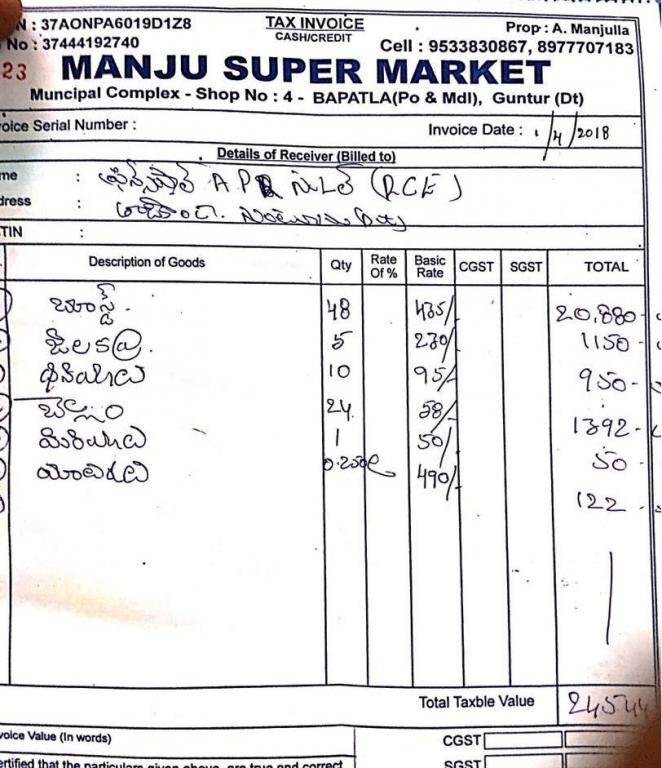 N : 37AONPA6019D1Z8
TAX INVOICE
Prop : A. Manjulla
No : 37444192740
CASH/CREDIT
Cell : 9533830867, 8977707183
23 MANJU SUPER MARKET
Muncipal Complex - Shop No : 4 - BAPATLA(Po & Mdl), Guntur (Dt)
oice Serial Number :
Invoice Date : 1/4/2018
Details of Receiver (Billed to)
me : ప్రిన్సిపాల్ A P R (RCE)
dress :
TIN :
Description of Goods Qty Rate Of % Basic Rate CGST SGST TOTAL
బూస్ట్. 48 435/ 20,880-
జీలకర్ర. 5 230/ 1150-
ధనియాలు 10 95/- 950-
బెల్లం 24 58/ 1392-
మిరియాలు 1 50/ 50-
యాలకులు 0.250 490/ 122-
Total Taxble Value 24544
voice Value (In words)
CGST
ertified that the particulars given above are true and correct
SGST